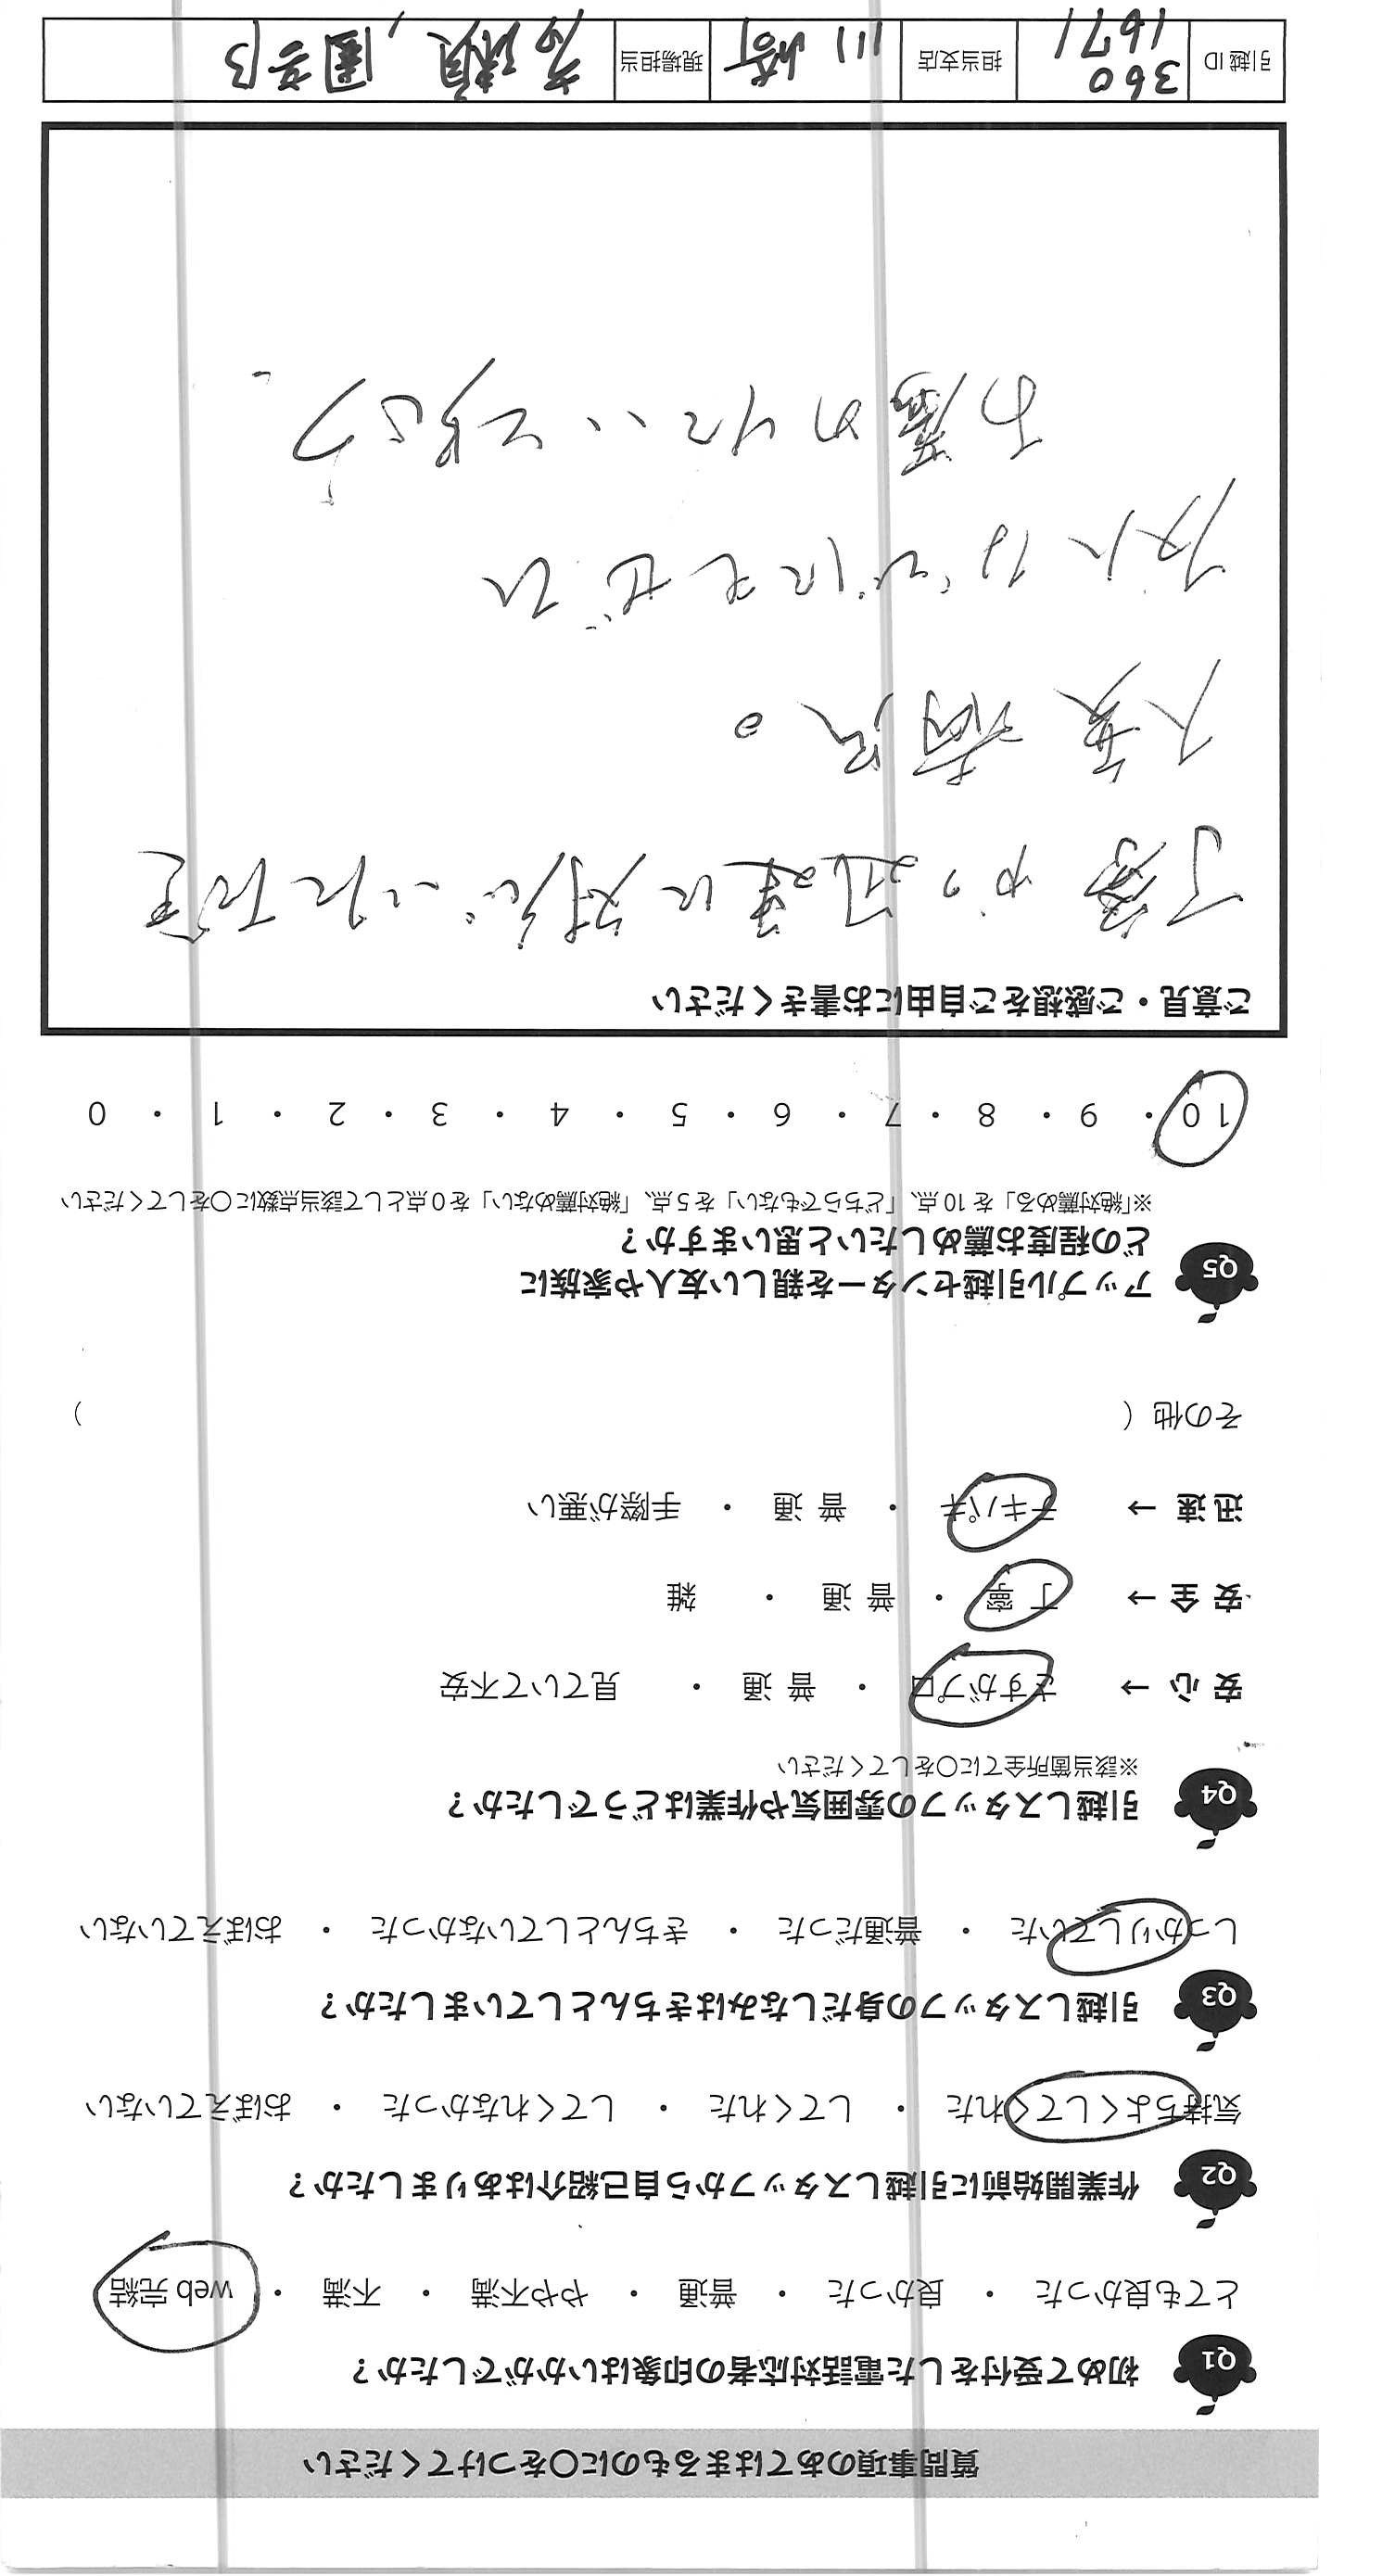 質問事項のあてはまるものに○をつけてください
Q1 初めて受付をした電話対応者の印象はいかがでしたか？
とても良かった ・ 良かった ・ 普通 ・ やや不満 ・ 不満 ・ web 完結
Q2 作業開始前に引越しスタッフから自己紹介はありましたか？
気持ちよくしてくれた ・ してくれた ・ してくれなかった ・ おぼえていない
Q3 引越しスタッフの身だしなみはきちんとしていましたか？
しっかりしていた ・ 普通だった ・ きちんとしていなかった ・ おぼえていない
Q4 引越しスタッフの雰囲気や作業はどうでしたか？
※該当箇所全てに○をしてください
安 心 → さすがプロ ・ 普 通 ・ 見ていて不安
安 全 → 丁 寧 ・ 普 通 ・ 雑
迅 速 → テキパキ ・ 普 通 ・ 手際が悪い
その他（ ）
Q5 アップル引越センターを親しい友人や家族に
どの程度お薦めしたいと思いますか？
※「絶対薦める」を 10 点、「どちらでもない」を 5 点、「絶対薦めない」を 0 点として該当点数に○をしてください
10 ・ 9 ・ 8 ・ 7 ・ 6 ・ 5 ・ 4 ・ 3 ・ 2 ・ 1 ・ 0
ご意見・ご感想をご自由にお書きください
丁寧かつ迅速に対応いただき
大変満足。
友人などにもぜひ
お薦めしたいと思う。
引越 ID 360 1671 担当支店 川崎 現場担当 高瀬, 園部